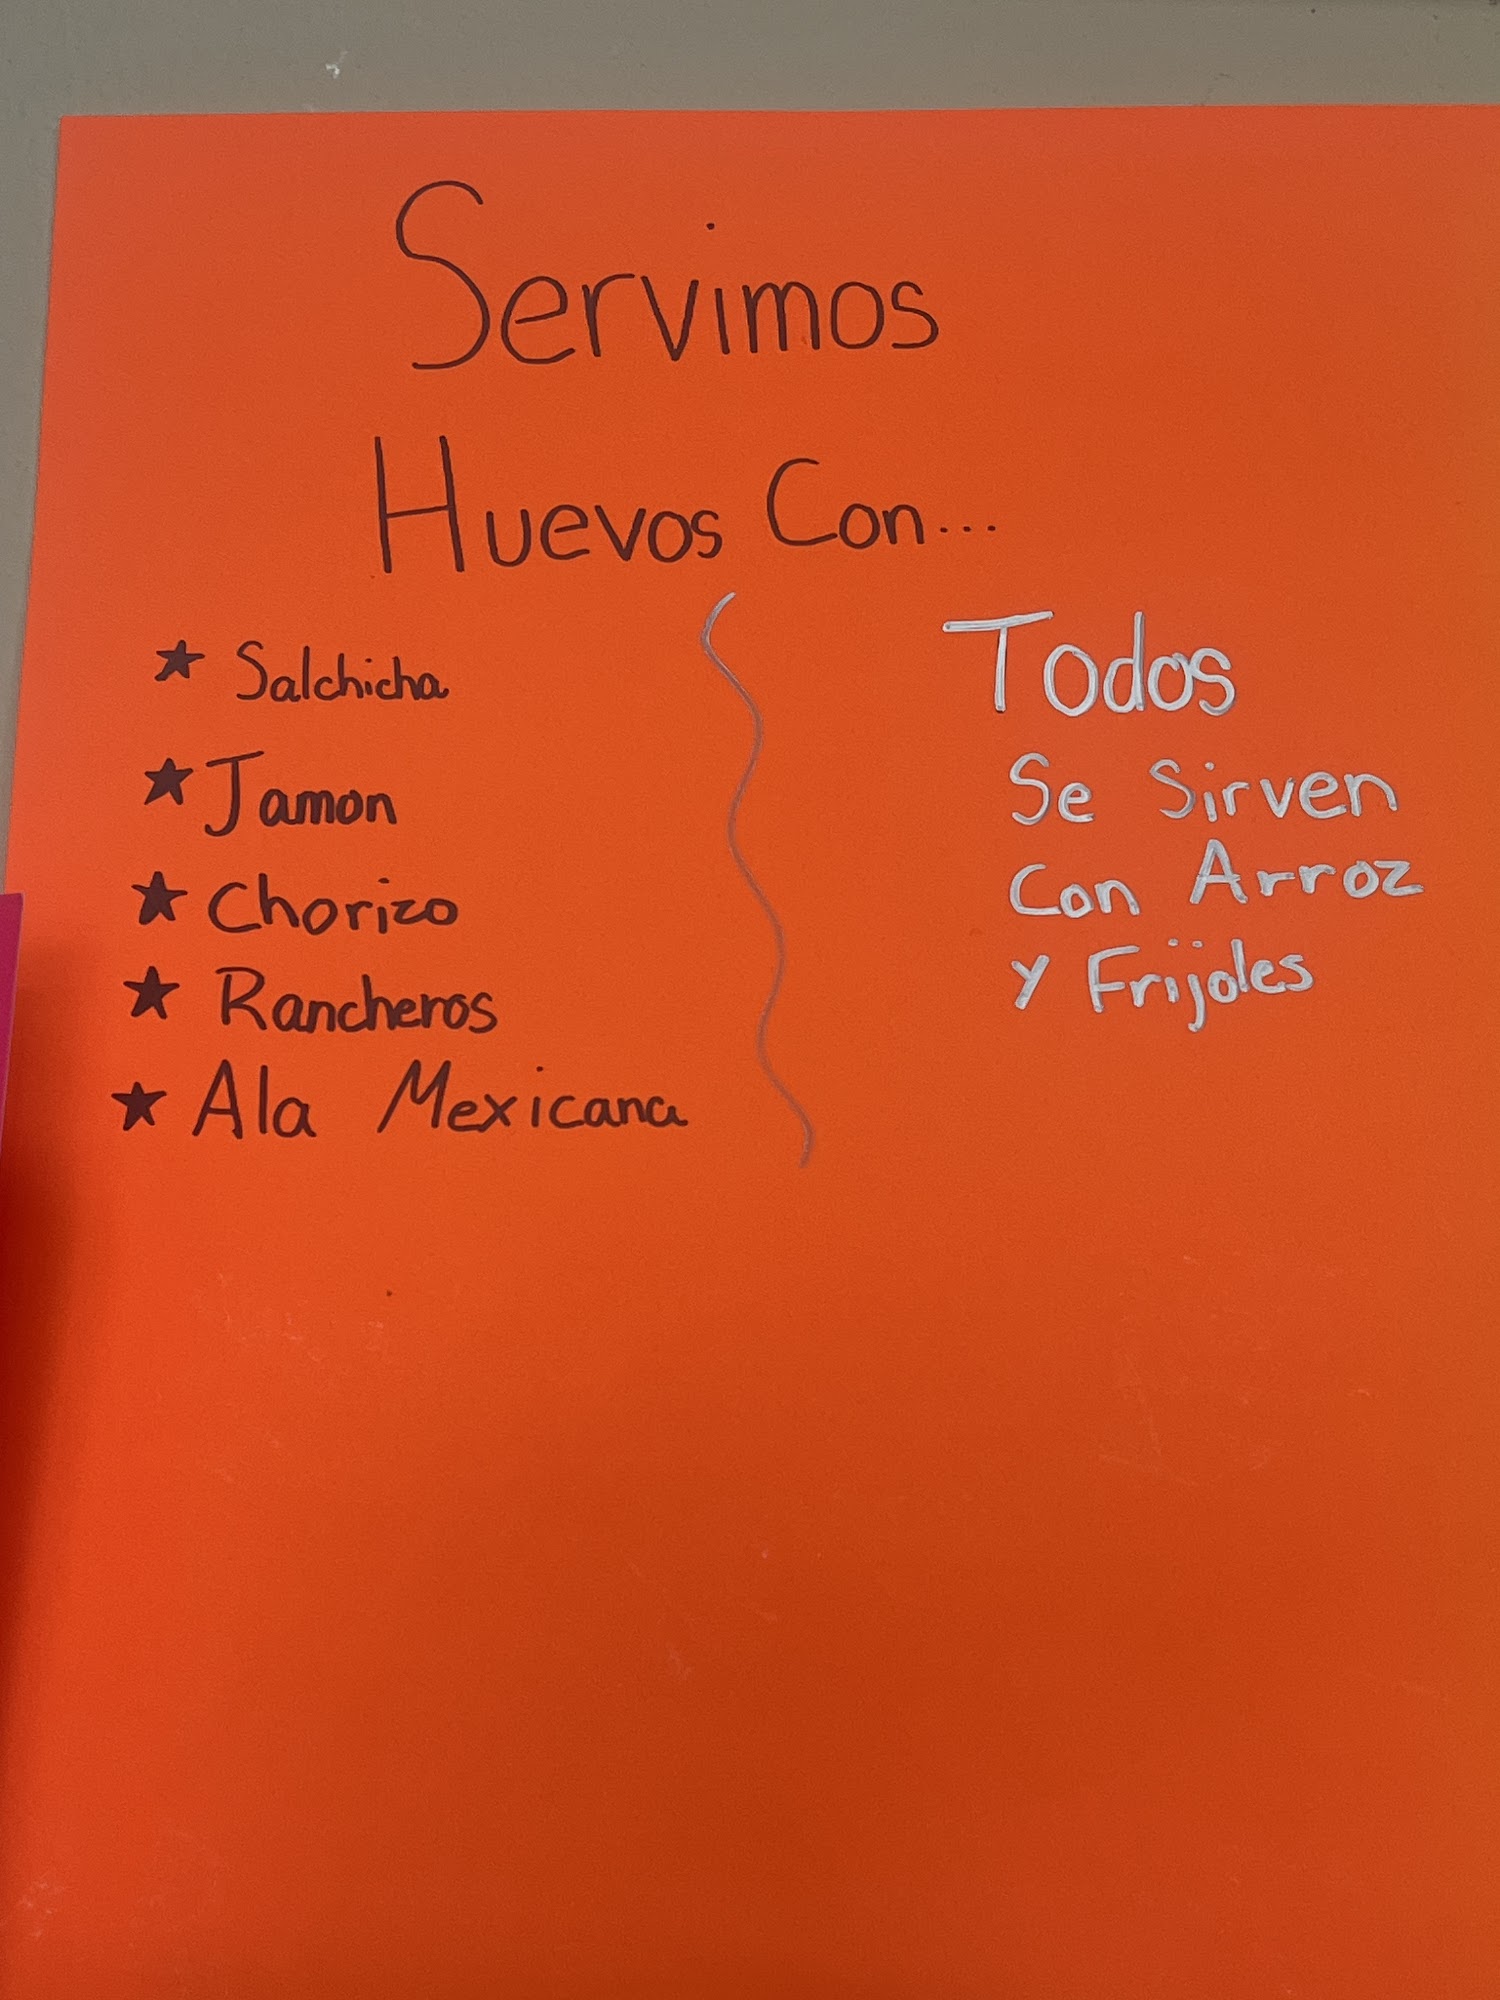 Servimos
Huevos Con...
★ Salchicha
★ Jamon
★ Chorizo
★ Rancheros
★ Ala Mexicana
Todos
Se Sirven
Con Arroz
y Frijoles